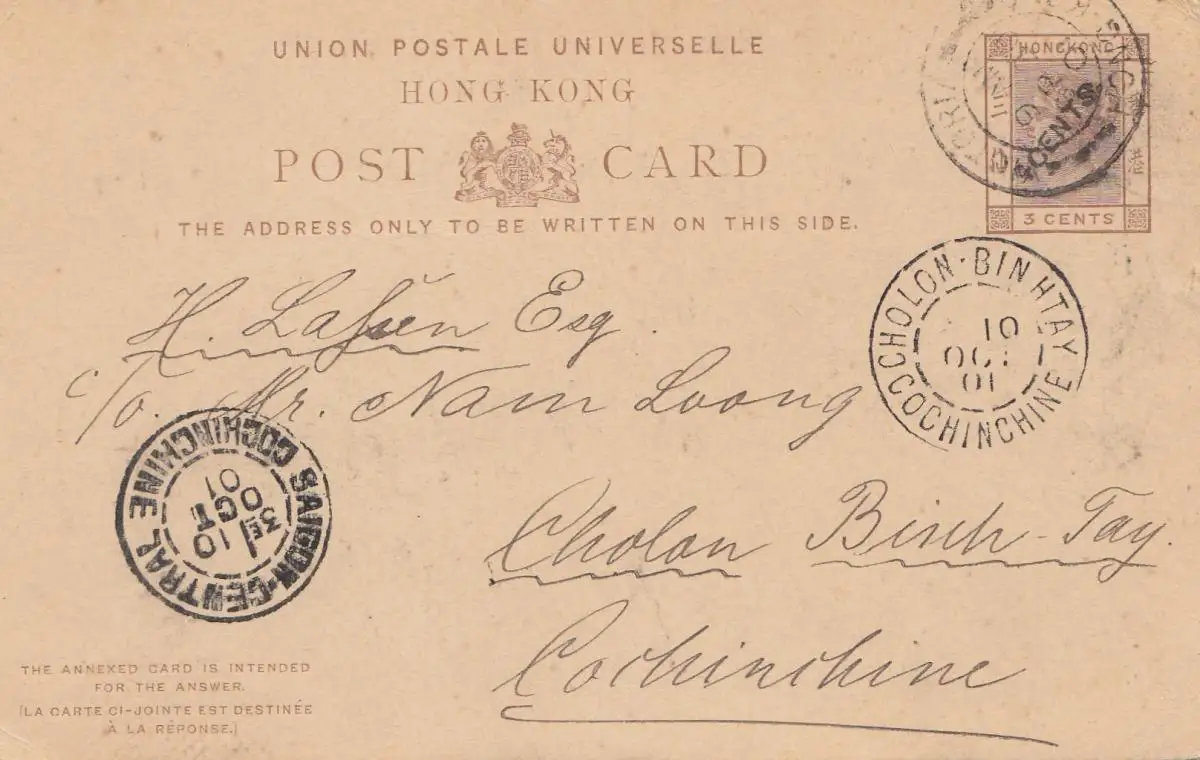 UNION POSTALE UNIVERSELLE
HONG KONG
POST CARD
THE ADDRESS ONLY TO BE WRITTEN ON THIS SIDE.
HONG KONG
4 CENTS
3 CENTS
H. Lassen Esq.
c/o. Mr. Nam Loong
CHOLON-BINHTAY
10
OCT
01
COCHINCHINE
SAIGON-CENTRAL COCHINCHINE
3E
10
OCT
01
Cholon Binh-Tay.
Cochinchine
THE ANNEXED CARD IS INTENDED
FOR THE ANSWER.
(LA CARTE CI-JOINTE EST DESTINÉE
À LA RÉPONSE.)